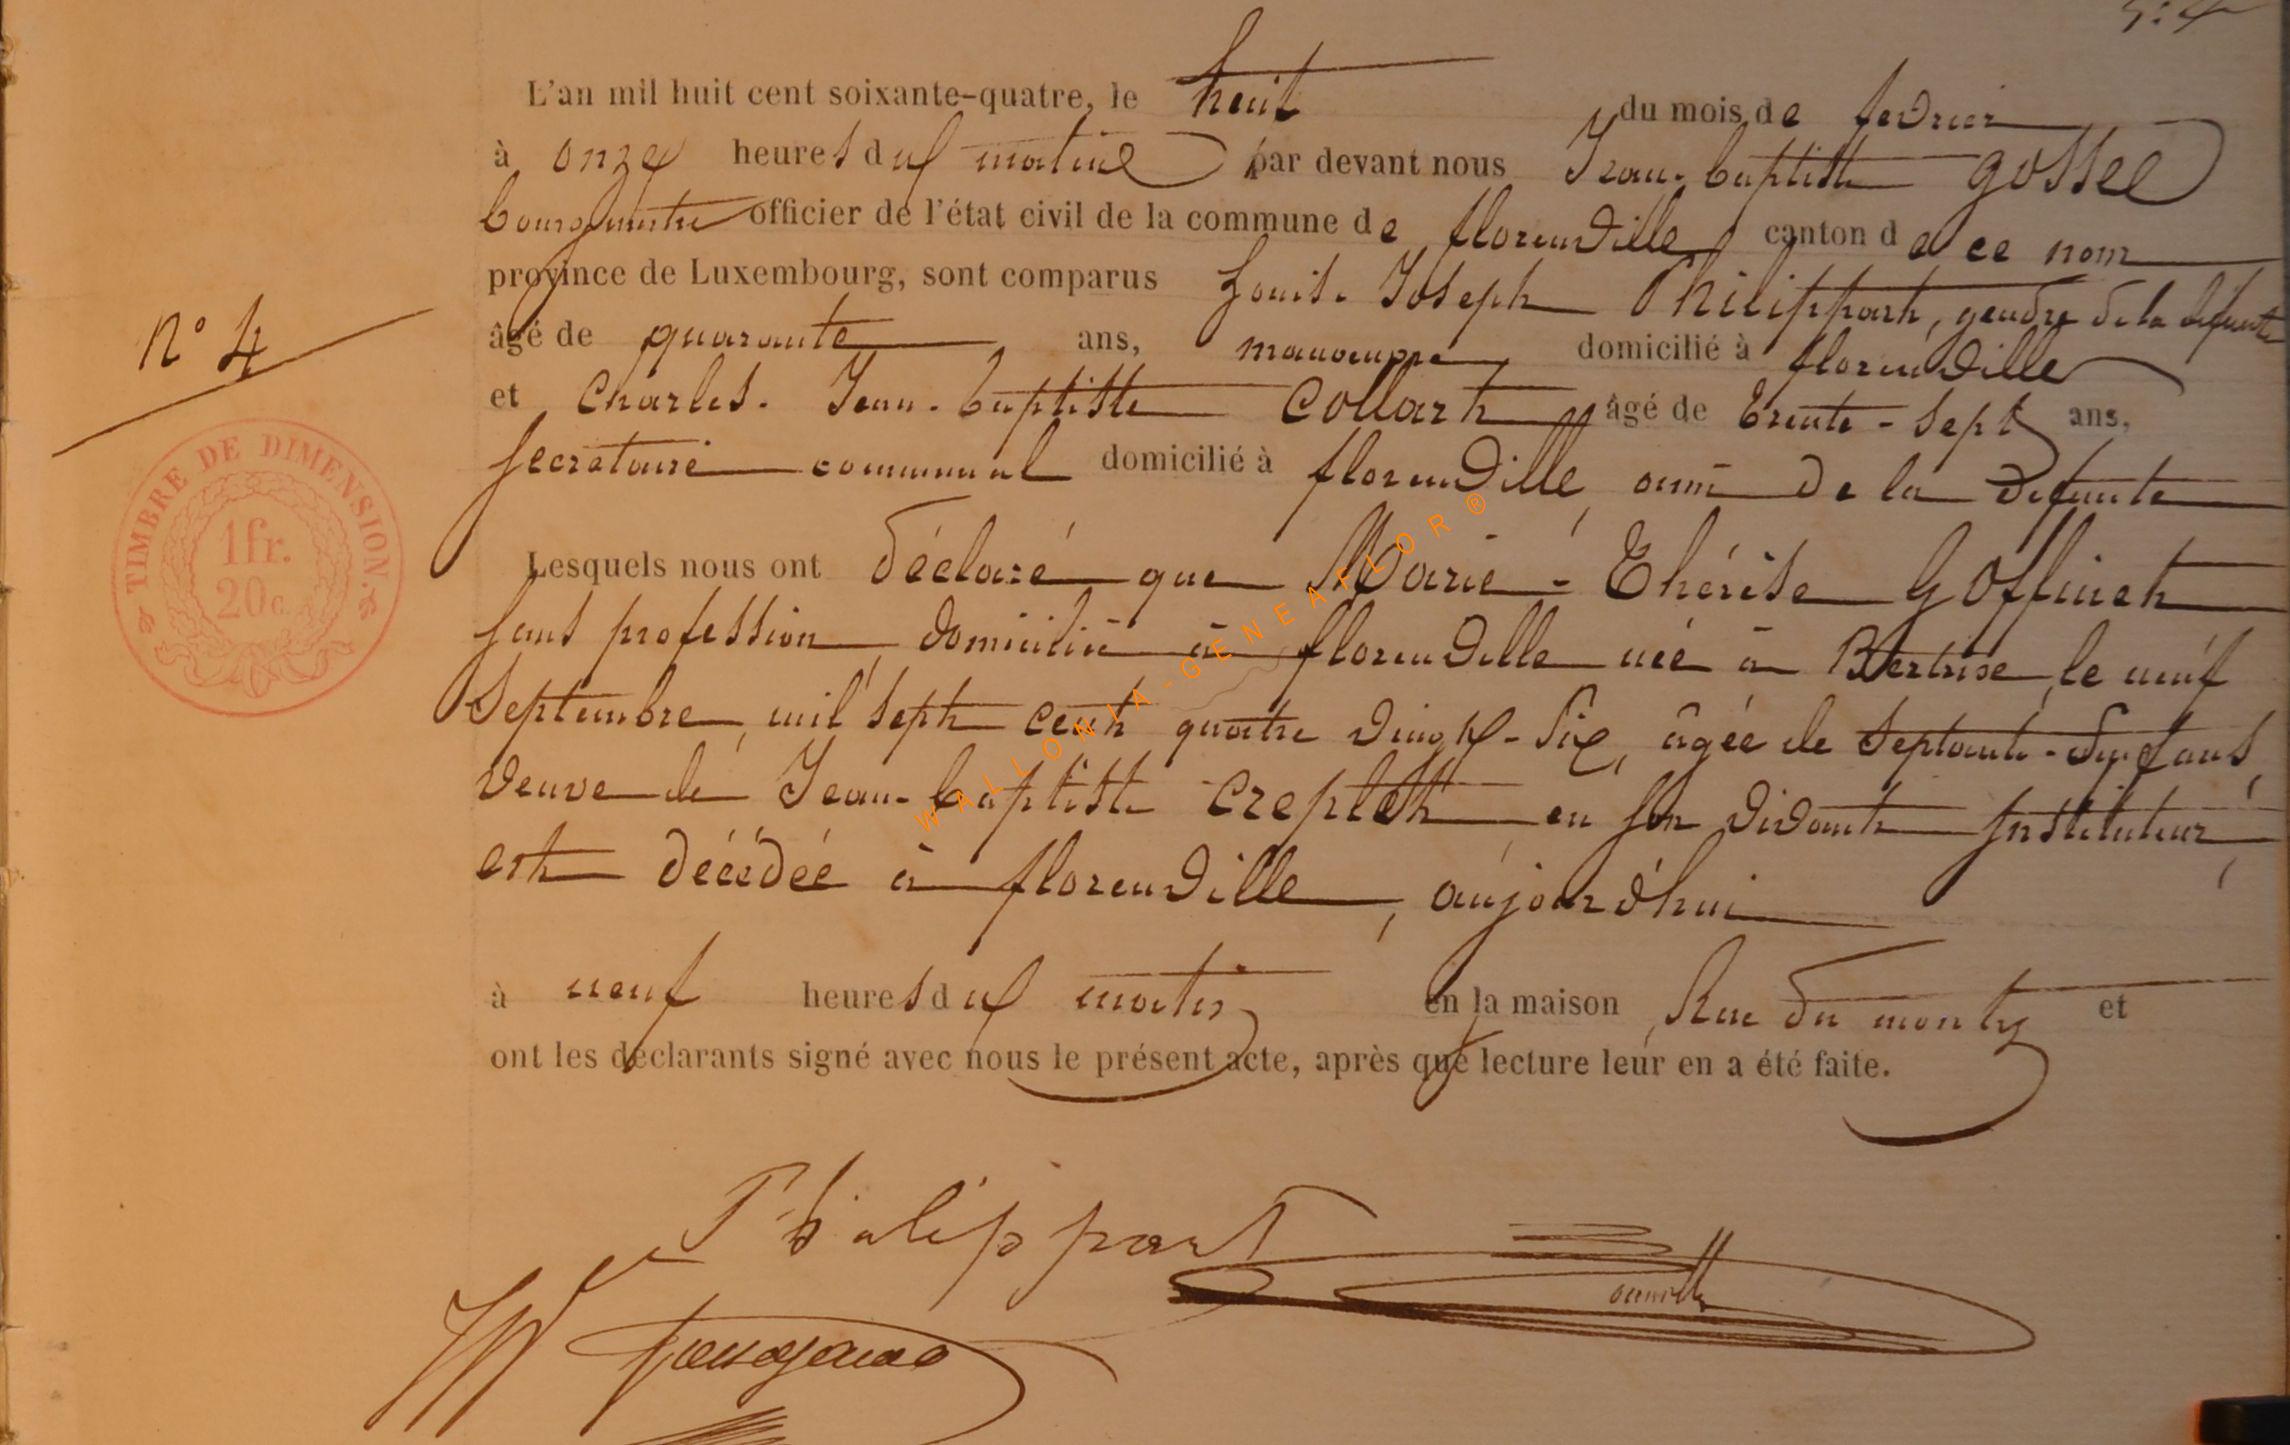 L'an mil huit cent soixante-quatre, le huit du mois de fevrier
à onze heures du matin par devant nous Jean-baptiste gosse
bourgmestre officier de l'état civil de la commune de florenville canton de ce nom
province de Luxembourg, sont comparus Louis-Joseph Philippart, gendre de la défunte
âgé de quarante ans, manoeuvre domicilié à florenville
N° 4
et Charles-Jean-baptiste Collart âgé de trente-sept ans,
secretaire communal domicilié à florenville, ami de la défunte
TIMBRE DE DIMENSION.
1fr.
20c.
Lesquels nous ont déclaré que Marie-Thérèse Goffinet
sans profession domiciliée à florenville née à Bertrix, le neuf
septembre, mil sept cent quatre vingt-six, âgée de septante-sept ans,
veuve de Jean-baptiste creplet en son vivant instituteur,
est décédée à florenville, aujourd'hui
à neuf heures du matin en la maison Rue du monty et
ont les déclarants signé avec nous le présent acte, après que lecture leur en a été faite.
Philippart
WALLONIA-GENEAFLOR®